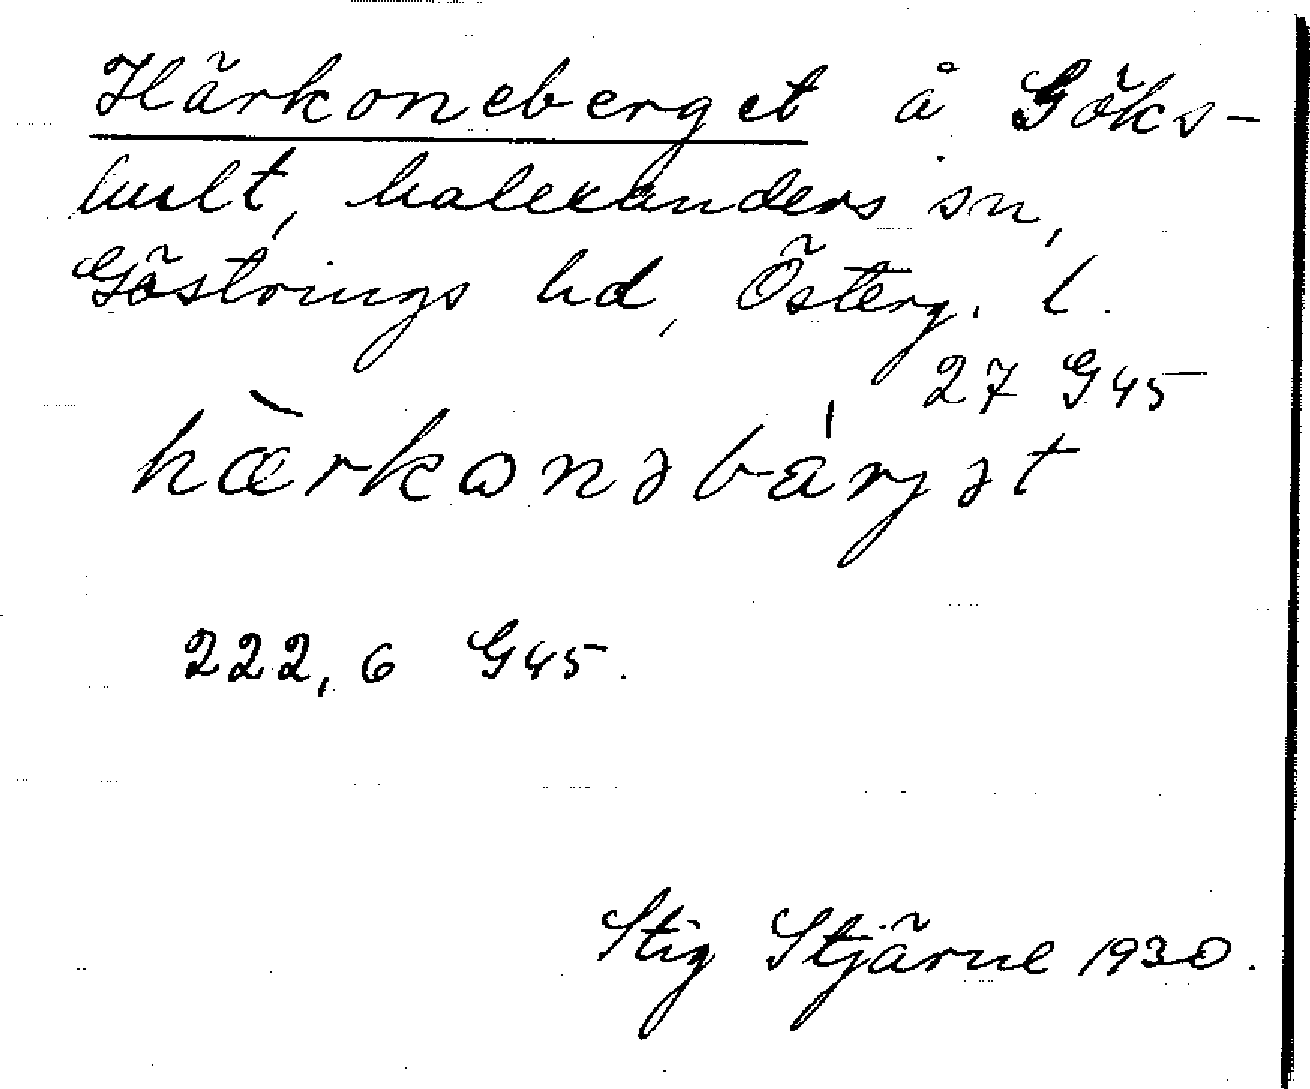 Härkoneberget å Göks-
hult, halexanders sn,
Göstrings hd, Österg. l.
27 G45
hærkɷnəbárgət
222,6 G45.
Stig Stjärne 1930.